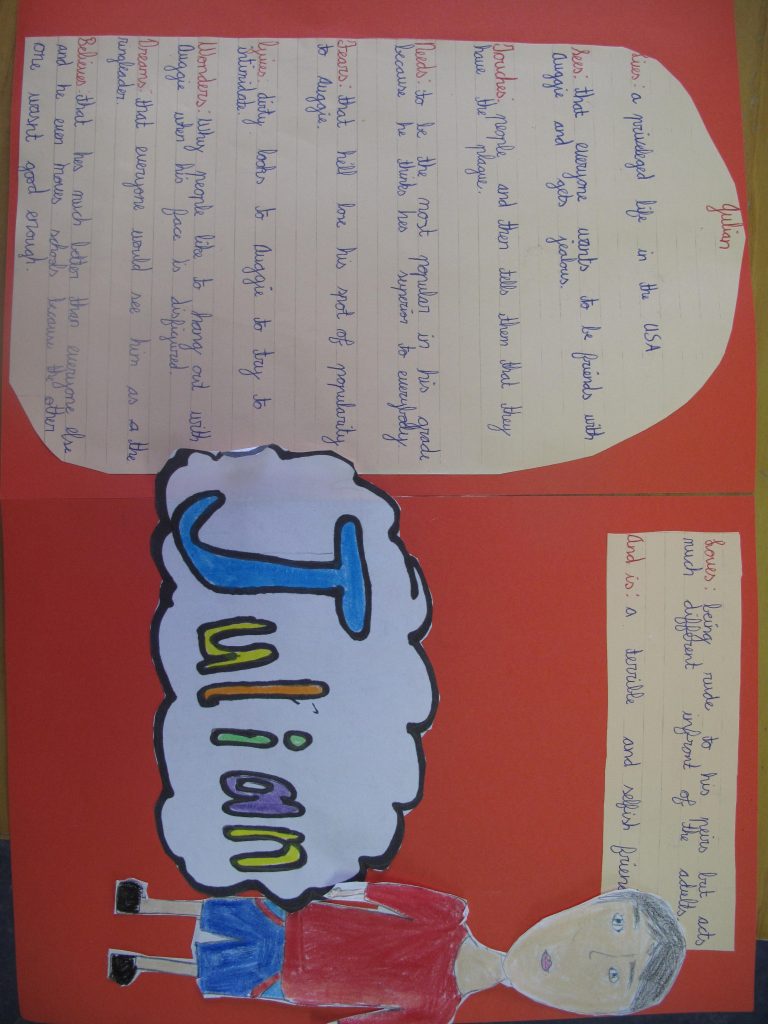 Julian
Lives: a privileged life in the USA
Sees: that everyone wants to be friends with
Auggie and gets jealous.
Touches: people and then tells them that they
have the plague.
Needs: to be the most popular in his grade
because he thinks hes superior to everybody
Fears: that he'll lose his spot of popularity
to Auggie.
Gives: dirty looks to Auggie to try to
intimidate
Wonders: Why people like to hang out with
Auggie when his face is disfigured.
Dreams: that everyone would see him as a the
ringleader.
Believes: that hes much better than everyone else
and he even moves schools because the other
one wasnt good enough.
Loves: being rude to his peirs but acts
much different infront of the adults.
And is: a terrible and selfish frien
Julian